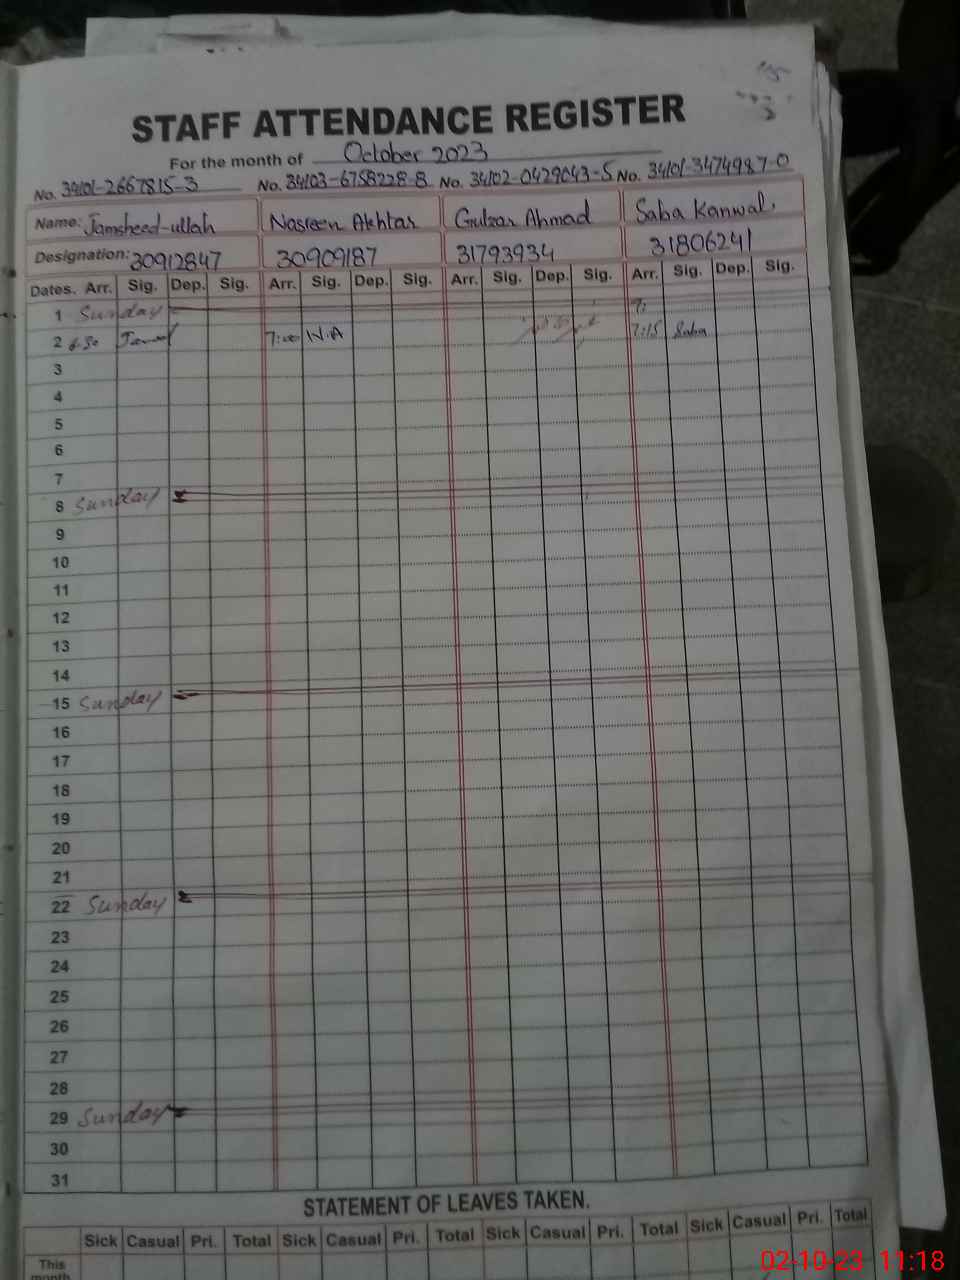 STAFF ATTENDANCE REGISTER
For the month of October 2023
No. 34101-2667815-3 No. 34103-6758228-8 No. 34102-0429043-5 No. 34101-3474987-0
Name: Jamsheed-ullah Nasreen Akhtar Gulzar Ahmad Saba Kanwal
Designation: 30912847 30909187 31793934 31806241
Dates. Arr. Sig. Dep. Sig. Arr. Sig. Dep. Sig. Arr. Sig. Dep. Sig. Arr. Sig. Dep. Sig.
1 Sunday 7:
2 6:50 7:00 N.A 7:15 Saba
3
4
5
6
7
8 Sunday
9
10
11
12
13
14
15 Sunday
16
17
18
19
20
21
22 Sunday
23
24
25
26
27
28
29 Sunday
30
31
STATEMENT OF LEAVES TAKEN.
Sick Casual Pri. Total Sick Casual Pri. Total Sick Casual Pri. Total Sick Casual Pri. Total
This
month
02-10-23 11:18